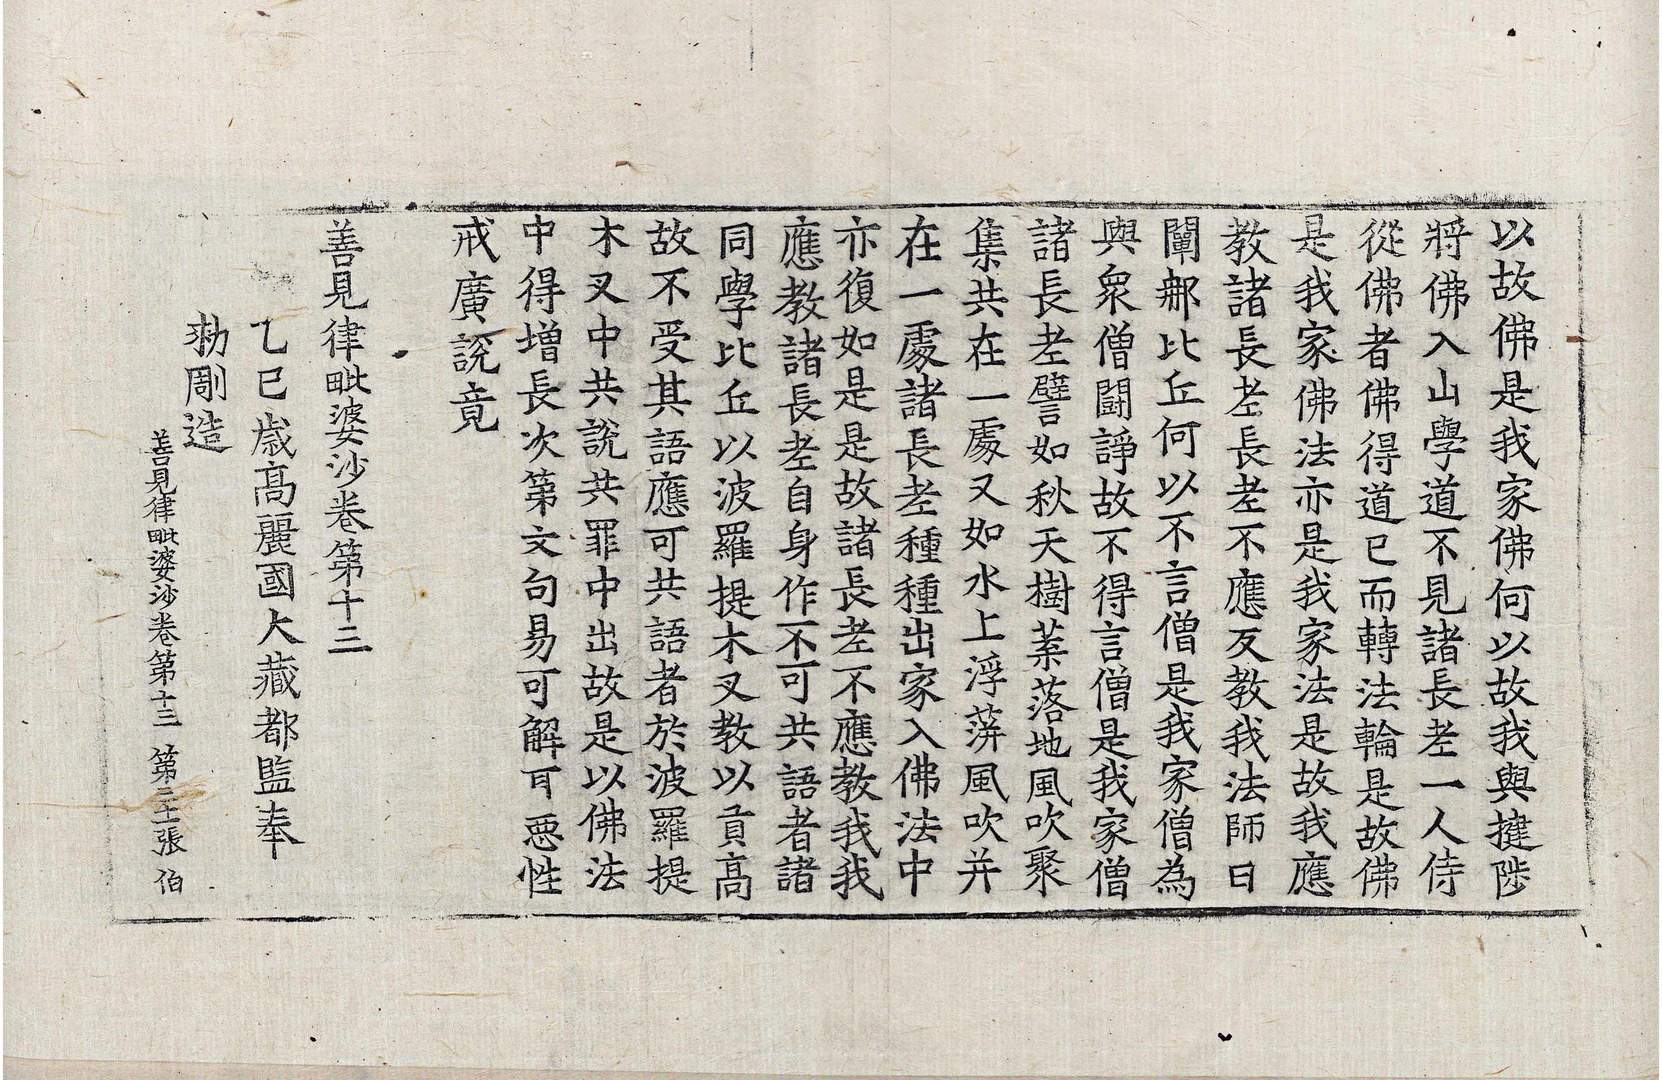 以故佛是我家佛何以故我與揵陟
將佛入山學道不見諸長老一人侍
從佛者佛得道已而轉法輪是故佛
是我家佛法亦是我家法是故我應
教諸長老長老不應反教我法師曰
闡那比丘何以不言僧是我家僧為
與衆僧鬪諍故不得言僧是我家僧
諸長老譬如秋天樹葉落地風吹聚
集共在一處又如水上浮蓱風吹并
在一處諸長老種種出家入佛法中
亦復如是是故諸長老不應教我我
應教諸長老自身作不可共語者諸
同學比丘以波羅提木叉教以貢高
故不受其語應可共語者於波羅提
木叉中共說共罪中出故是以佛法
中得增長次第文句易可解耳惡性
戒廣說竟
善見律毗婆沙卷第十三
乙巳歲高麗國大藏都監奉
勑彫造
善見律毗婆沙卷第十三 第二十張 伯